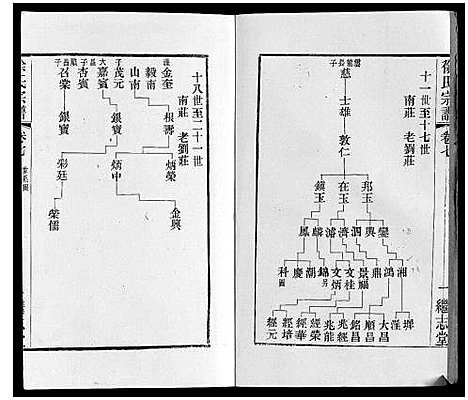 徐氏宗譜 卷七
十一世至十七世
南莊 老劉莊
慈
士雄
敦仁
邦玉
在玉
鎮玉
變 興 泗 濟 濾 麟 鳳
湘 鴻 鼎 景福 文桂 文炳 錦 湖 慶 科
墀
滢
大昌
順昌
銘昌
兆經
兆能
經榮
經華
經培
經元
一 繼志堂
十八世至二十一世
南莊 老劉莊
金奎
毅南
山南
茂元
嘉賓
杏賓
召棠
根壽
銀寶
銀寶
炳榮
炳中
彩廷
金興
榮儒